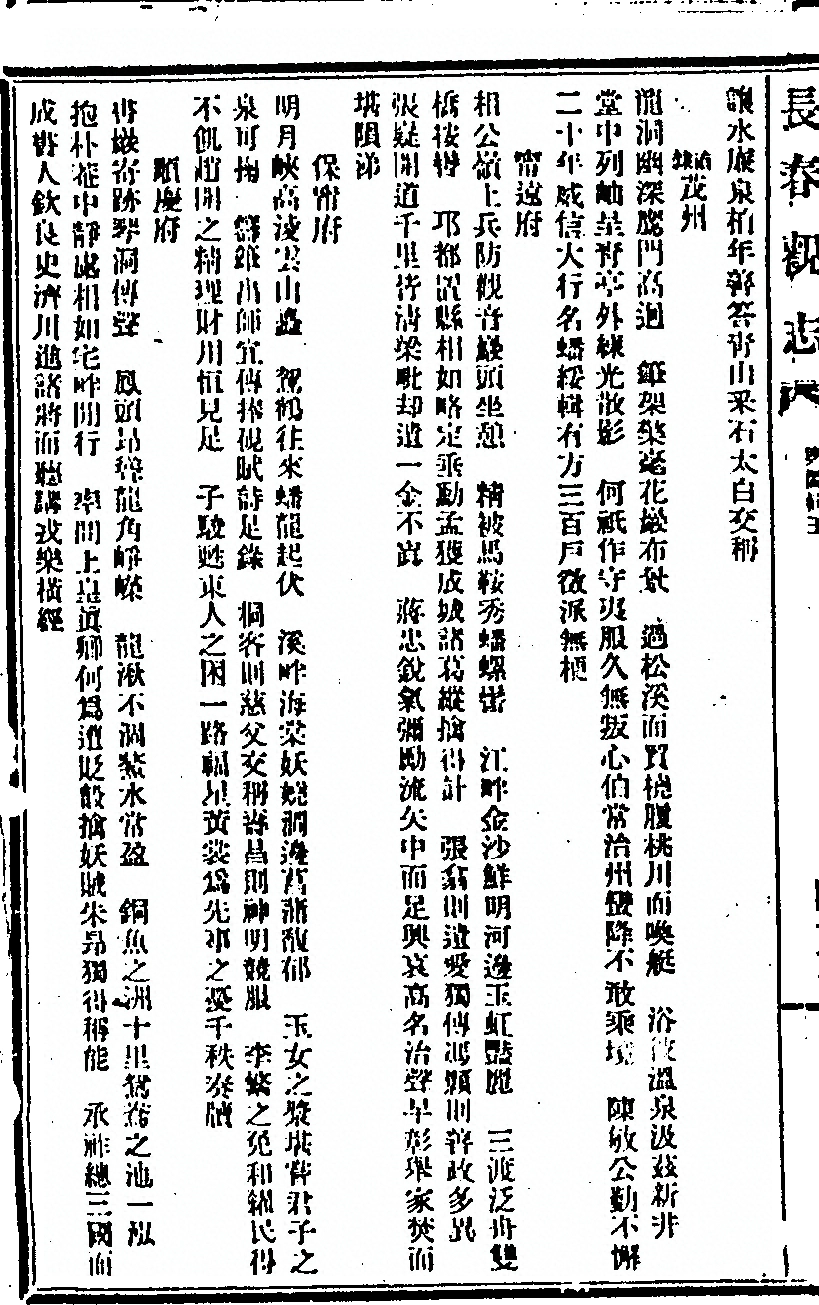 長春觀志
讓水廉泉柏年辭答青山采石太白交稱
茂州
龍洞幽深鴈門高迥 筆架藥毫花巖布景 過松溪而買棹履桃川而喚艇 浴彼溫泉汲茲新井
堂中列岫呈青亭外綠光散影 何祇作守夷服久無叛心伯常治州蠻降不敢乘境 陳敏公勤不懈
二十年威信大行名蟠綏輯有方三百戶徵派無梗
甯遠府
相公嶺上兵防觀音巖頭坐憩 精被馬鞍秀蟠螺髻 江畔金沙鮮明河邊玉虹豔麗 三渡泛舟雙
橋接轡 邛都置縣相如略定乘勳孟獲成城諸葛縱擒得計 張翕則遺愛獨傳馮顥則善政多異
張嶷開道千里皆清梁毗却遺一金不寘 蔣忠銳氣彌勵流矢中而足興哀高名治聲早彰舉家焚而
堪隕涕
保甯府
明月峽高淩雲山 駕鶴往來蟠龍起伏 溪畔海棠妖嬈澗邊菖蒲馥郁 玉女之漿堪 君子之
泉可掬 出師宜傳捧硯賦詩足錄 桐客則慈父交稱 昌則神明競服 李 之免和糴民得
不飢趙開之精理財用恒見足 子駿甦東人之困一路福星黃裳爲先事之憂千秋奏牘
順慶府
書巖寄跡琴洞傳聲 鳳頭昂聳龍角崢嶸 龍湫不涸紫水常盈 銅魚之洲十里鴛鴦之池一泓
抱朴菴中靜處相如宅畔閒行 上 真卿何爲遭貶 擒妖賊朱昂獨得稱能 承祚總三國而
成書人欽良史濟川進諸將而聽講我樂橫經